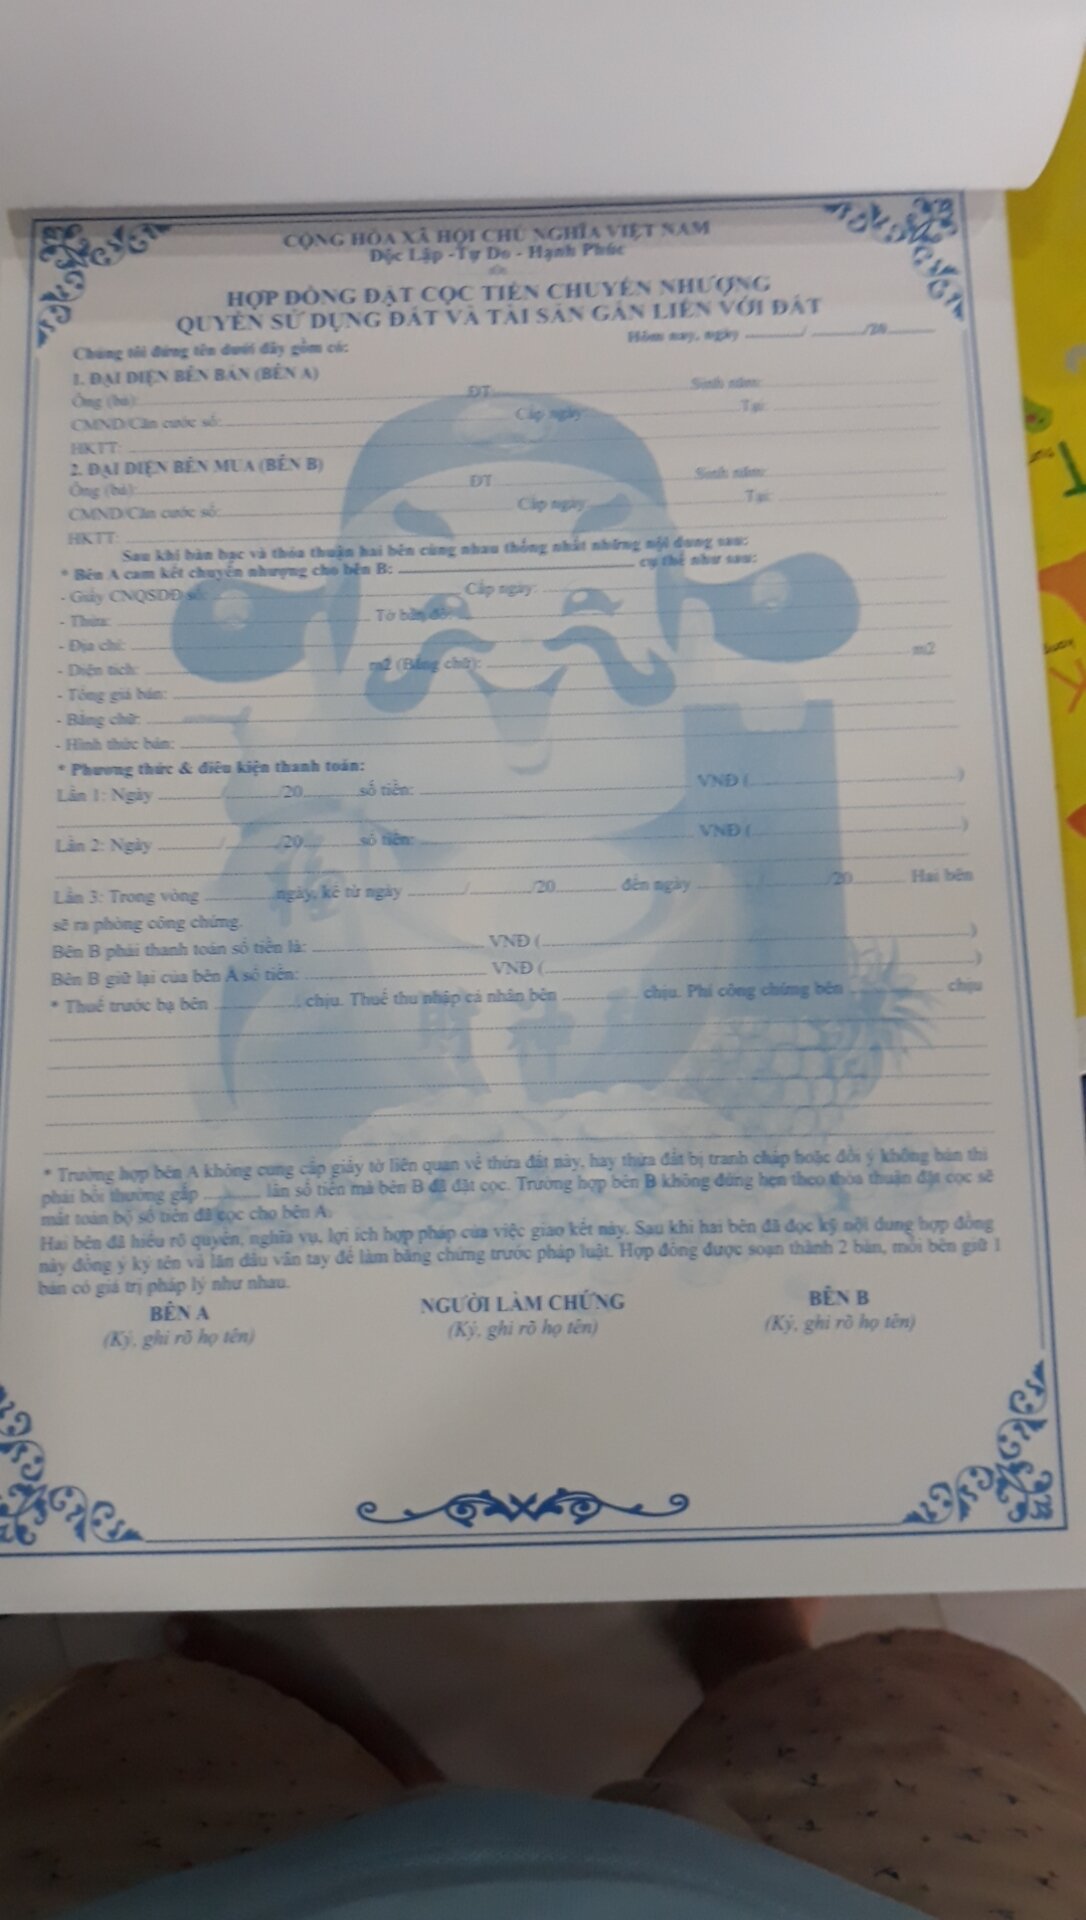 CỘNG HÒA XÃ HỘI CHỦ NGHĨA VIỆT NAM
Độc Lập -Tự Do - Hạnh Phúc
HỢP ĐỒNG ĐẶT CỌC TIỀN CHUYỂN NHƯỢNG
QUYỀN SỬ DỤNG ĐẤT VÀ TÀI SẢN GẮN LIỀN VỚI ĐẤT
Hôm nay, ngày ............/ ............/20............
Chúng tôi đứng tên dưới đây gồm có:
1. ĐẠI DIỆN BÊN BÁN (BÊN A)
Ông (bà): ............ ĐT: ............ Sinh năm: ............
CMND/Căn cước số: ............ Cấp ngày: ............ Tại: ............
HKTT: ............
2. ĐẠI DIỆN BÊN MUA (BÊN B)
Ông (bà): ............ ĐT ............ Sinh năm: ............
CMND/Căn cước số: ............ Cấp ngày: ............ Tại: ............
HKTT: ............
Sau khi bàn bạc và thỏa thuận hai bên cùng nhau thống nhất những nội dung sau:
* Bên A cam kết chuyển nhượng cho bên B: ............ cụ thể như sau:
- Giấy CNQSDĐ số: ............ Cấp ngày: ............
- Thửa: ............ Tờ bản đồ: ............
- Địa chỉ: ............
- Diện tích: ............ m2 (Bằng chữ): ............ m2
- Tổng giá bán: ............
- Bằng chữ: ............
- Hình thức bán: ............
* Phương thức & điều kiện thanh toán:
Lần 1: Ngày ............/............/20............ số tiền: ............ VNĐ (............)
Lần 2: Ngày ............/............/20............ số tiền: ............ VNĐ (............)
Lần 3: Trong vòng ............ ngày, kể từ ngày ............/............/20............ đến ngày ............/............/20............ Hai bên
sẽ ra phòng công chứng.
Bên B phải thanh toán số tiền là: ............ VNĐ (............)
Bên B giữ lại của bên A số tiền: ............ VNĐ (............)
* Thuế trước bạ bên ............ chịu. Thuế thu nhập cá nhân bên ............ chịu. Phí công chứng bên ............ chịu
財神
* Trường hợp bên A không cung cấp giấy tờ liên quan về thửa đất này, hay thửa đất bị tranh chấp hoặc đổi ý không bán thì
phải bồi thường gấp ............ lần số tiền mà bên B đã đặt cọc. Trường hợp bên B không đúng hẹn theo thỏa thuận đặt cọc sẽ
mất toàn bộ số tiền đã cọc cho bên A.
Hai bên đã hiểu rõ quyền, nghĩa vụ, lợi ích hợp pháp của việc giao kết này. Sau khi hai bên đã đọc kỹ nội dung hợp đồng
này đồng ý ký tên và lăn dấu vân tay để làm bằng chứng trước pháp luật. Hợp đồng được soạn thành 2 bản, mỗi bên giữ 1
bản có giá trị pháp lý như nhau.
BÊN A NGƯỜI LÀM CHỨNG BÊN B
(Ký, ghi rõ họ tên) (Ký, ghi rõ họ tên) (Ký, ghi rõ họ tên)